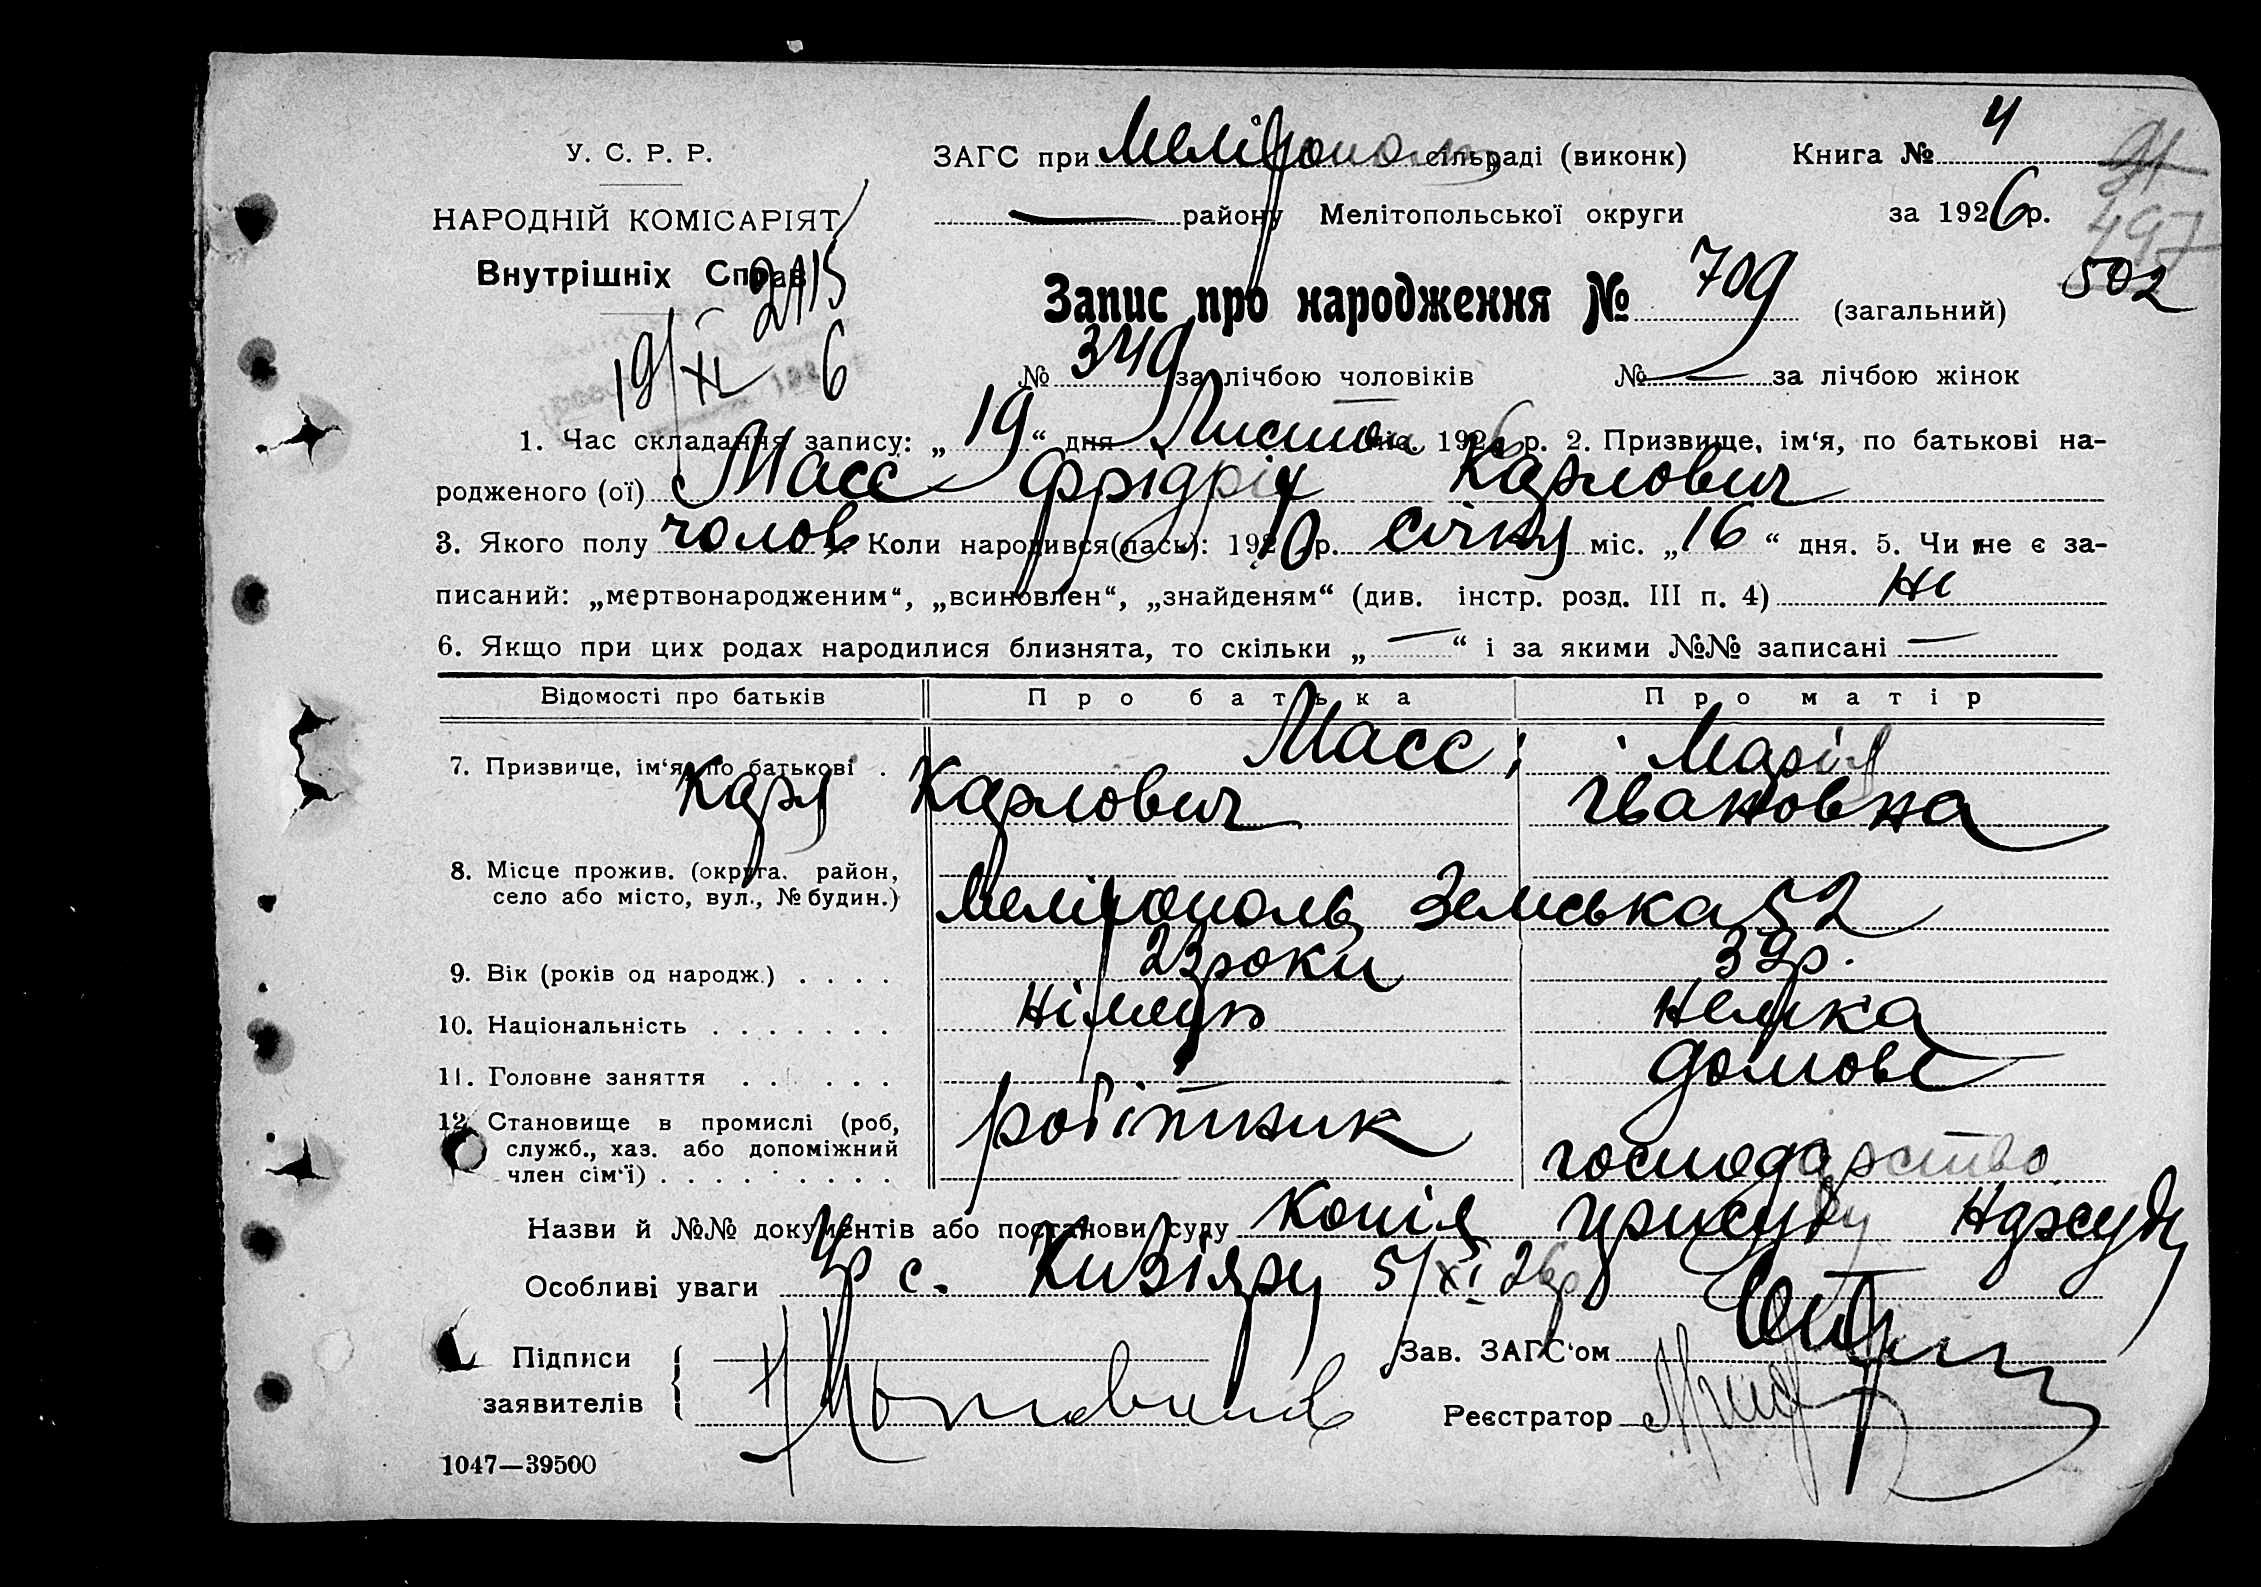 У. С. Р. Р.
НАРОДНІЙ КОМІСАРІЯТ
Внутрішніх Справ
2115
19/XI 6
ЗАГС при Мелітополь сільраді (виконк) Книга № 4
91
— району Мелітопольської округи за 1926 р.
497
502
Запис про народження № 709 (загальний)
№ 349 за лічбою чоловіків № — за лічбою жінок
1. Час складання запису: „19“ дня Листоп міс. 1926 р. 2. Призвище, ім‘я, по батькові на-
родженого (ої) Масс Фрідріх Карлович
3. Якого полу чолов Коли народився(лась): 1910 р. Січню міс. „16“ дня. 5. Чи не є за-
писаний: „мертвонародженим“, „всиновлен“, „знайденям“ (див. інстр. розд. III п. 4) Ні
6. Якщо при цих родах народилися близнята, то скільки „—“ і за якими №№ записані —
Відомості про батьків Про батька Про матір
7. Призвище, ім‘я, по батькові . Масс Марія
Карл Карлович Івановна
8. Місце прожив. (округа, район,
село або місто, вул., № будин.) Мелітополь Земська 52
9. Вік (років од народж.) . . . . 23 роки 39 р.
10. Національність . . . . . . . Німець Немка
11. Головне заняття . . . . . . домове
12. Становище в промислі (роб, робітник
служб., хаз. або допоміжний
член сім‘ї) . . . . . . . . . господарство
Назви й №№ документів або постанови суду Копія присуду Нарсуду
Особливі уваги с. Кизіяру 5/XI 26р
Підписи Зав. ЗАГС‘ом
заявителів Реєстратор
1047—39500